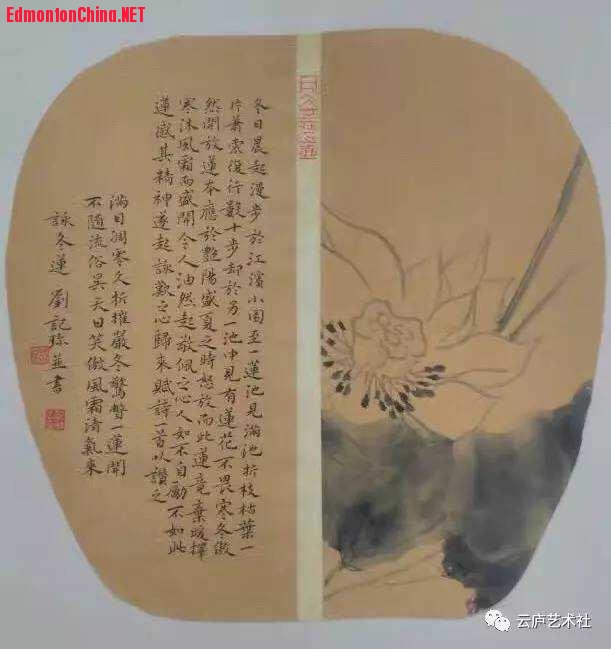 EdmontonChina.NET
冬日晨起漫步於江濱小園至一蓮池見滿池折枝枯葉一
片蕭索復行數十步却於另一池中見有蓮花不畏寒冬傲
然開放蓮本應於艷陽盛夏之時怒放而此蓮竟棄暖擇
寒沐風霜而盛開令人油然起敬佩之心人如不自勵不如此
蓮感其精神遂起詠歎之心歸來賦詩一首以讚之
滿目凋寒久折摧嚴冬驚瞥一蓮開
不隨流俗異天日笑傲風霜清氣來
詠冬蓮 劉記 並書
云庐艺术社